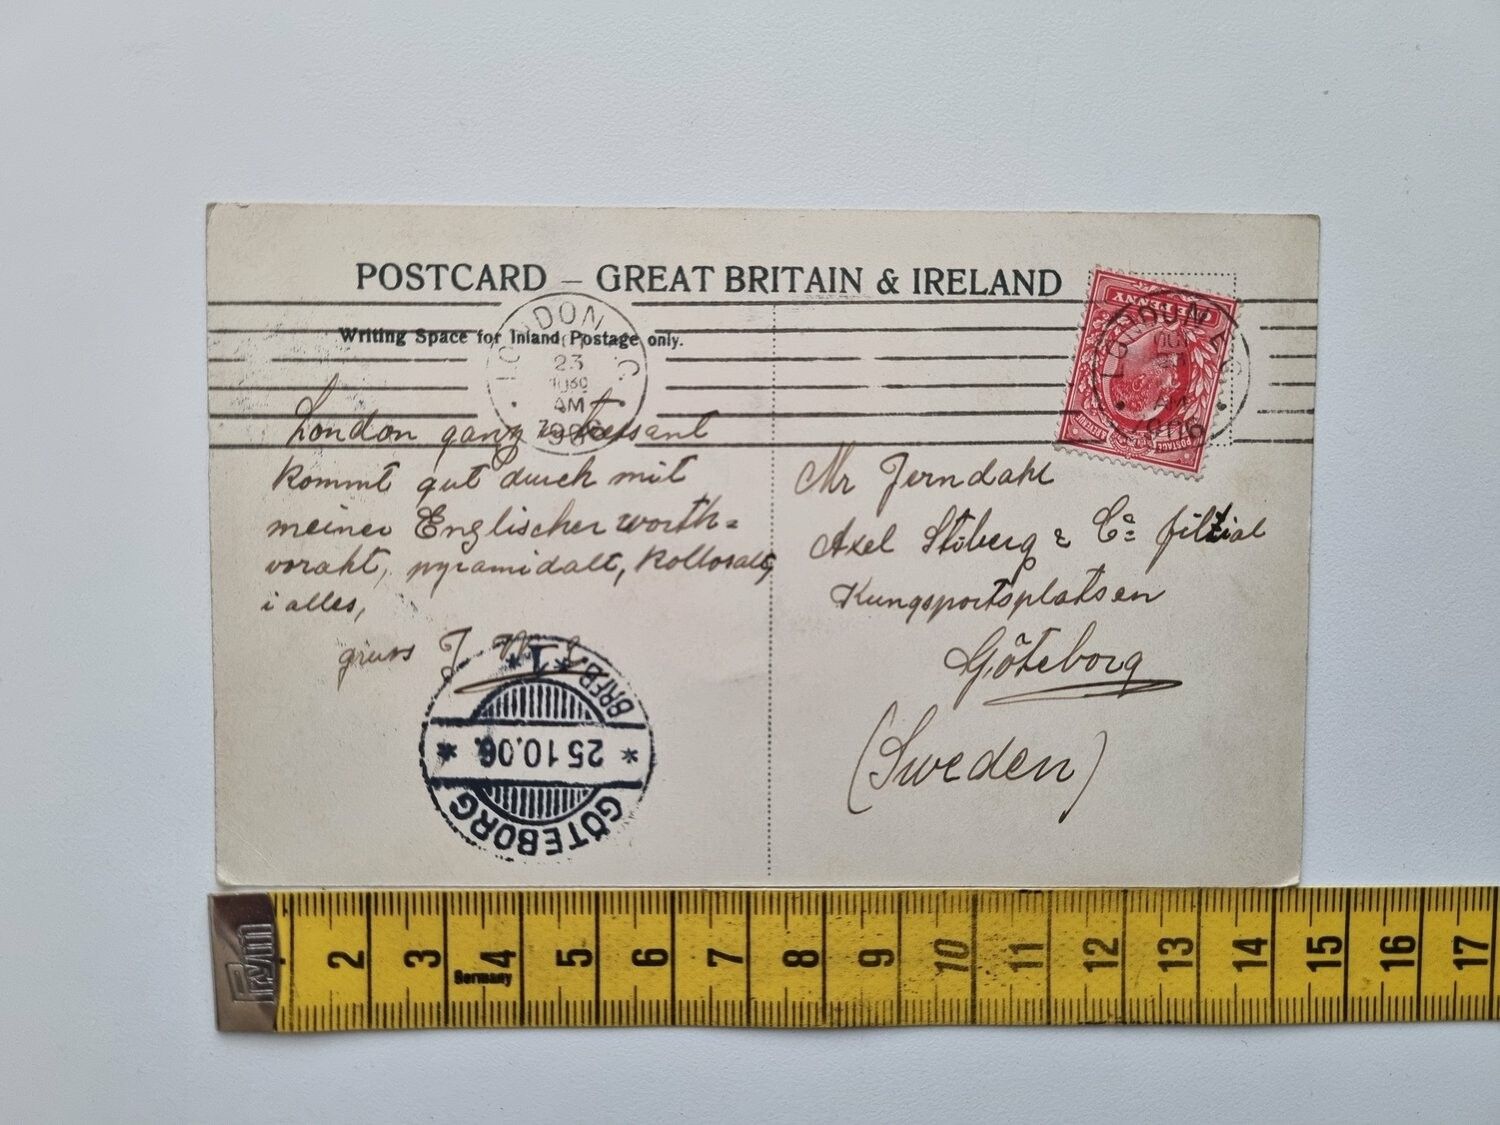 POSTCARD – GREAT BRITAIN & IRELAND
Writing Space for Inland Postage only.
LONDON
23
1030
AM
1906
ONE PENNY
POSTAGE & REVENUE
LONDON
AM
1906
London ganz
kommt gut durch mit
meiner Englischer worth=
voraht, pyramidalt, kollosalt,
i alles,
gruss J
Mr Jerndahl
Axel Stiberg & Co filial
Kungsportsplatsen
Göteborg
(Sweden)
*1* BREFB.
* 25 10.06. *
GÖTEBORG
Prym
2 3 4 5 6 7 8 9 10 11 12 13 14 15 16 17
Germany